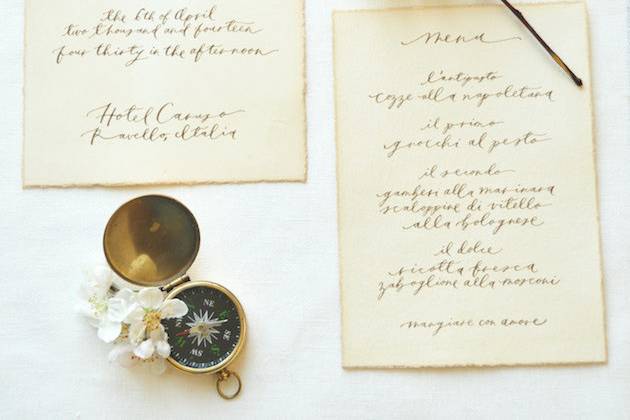 the 6th of April
two thousand and fourteen
four thirty in the afternoon
Hotel Caruso
Ravello, Italia
menu
l'antipasto
cozze alla napoletana
il primo
gnocchi al pesto
il secondo
gamberi alla marinara
scaloppine di vitello
alla bolognese
il dolce
ricotta fresca
zabaglione alla mosconi
mangiare con amore
NE
E
SE
S
SW
W